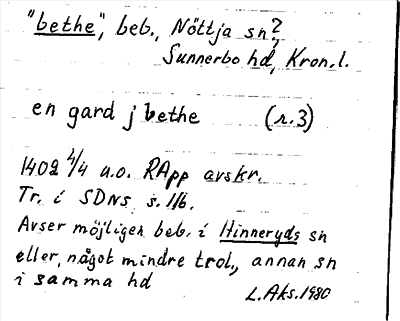 "bethe", beb., Nöttja sn?
Sunnerbo hd, Kron.l.
en gard j bethe (r.3)
1402 2/4 u.o. RApp avskr.
Tr. i SDNS s. 116.
Avser möjligen beb. i Hinneryds sn
eller, något mindre trol., annan sn
i samma hd
L. Aks. 1980